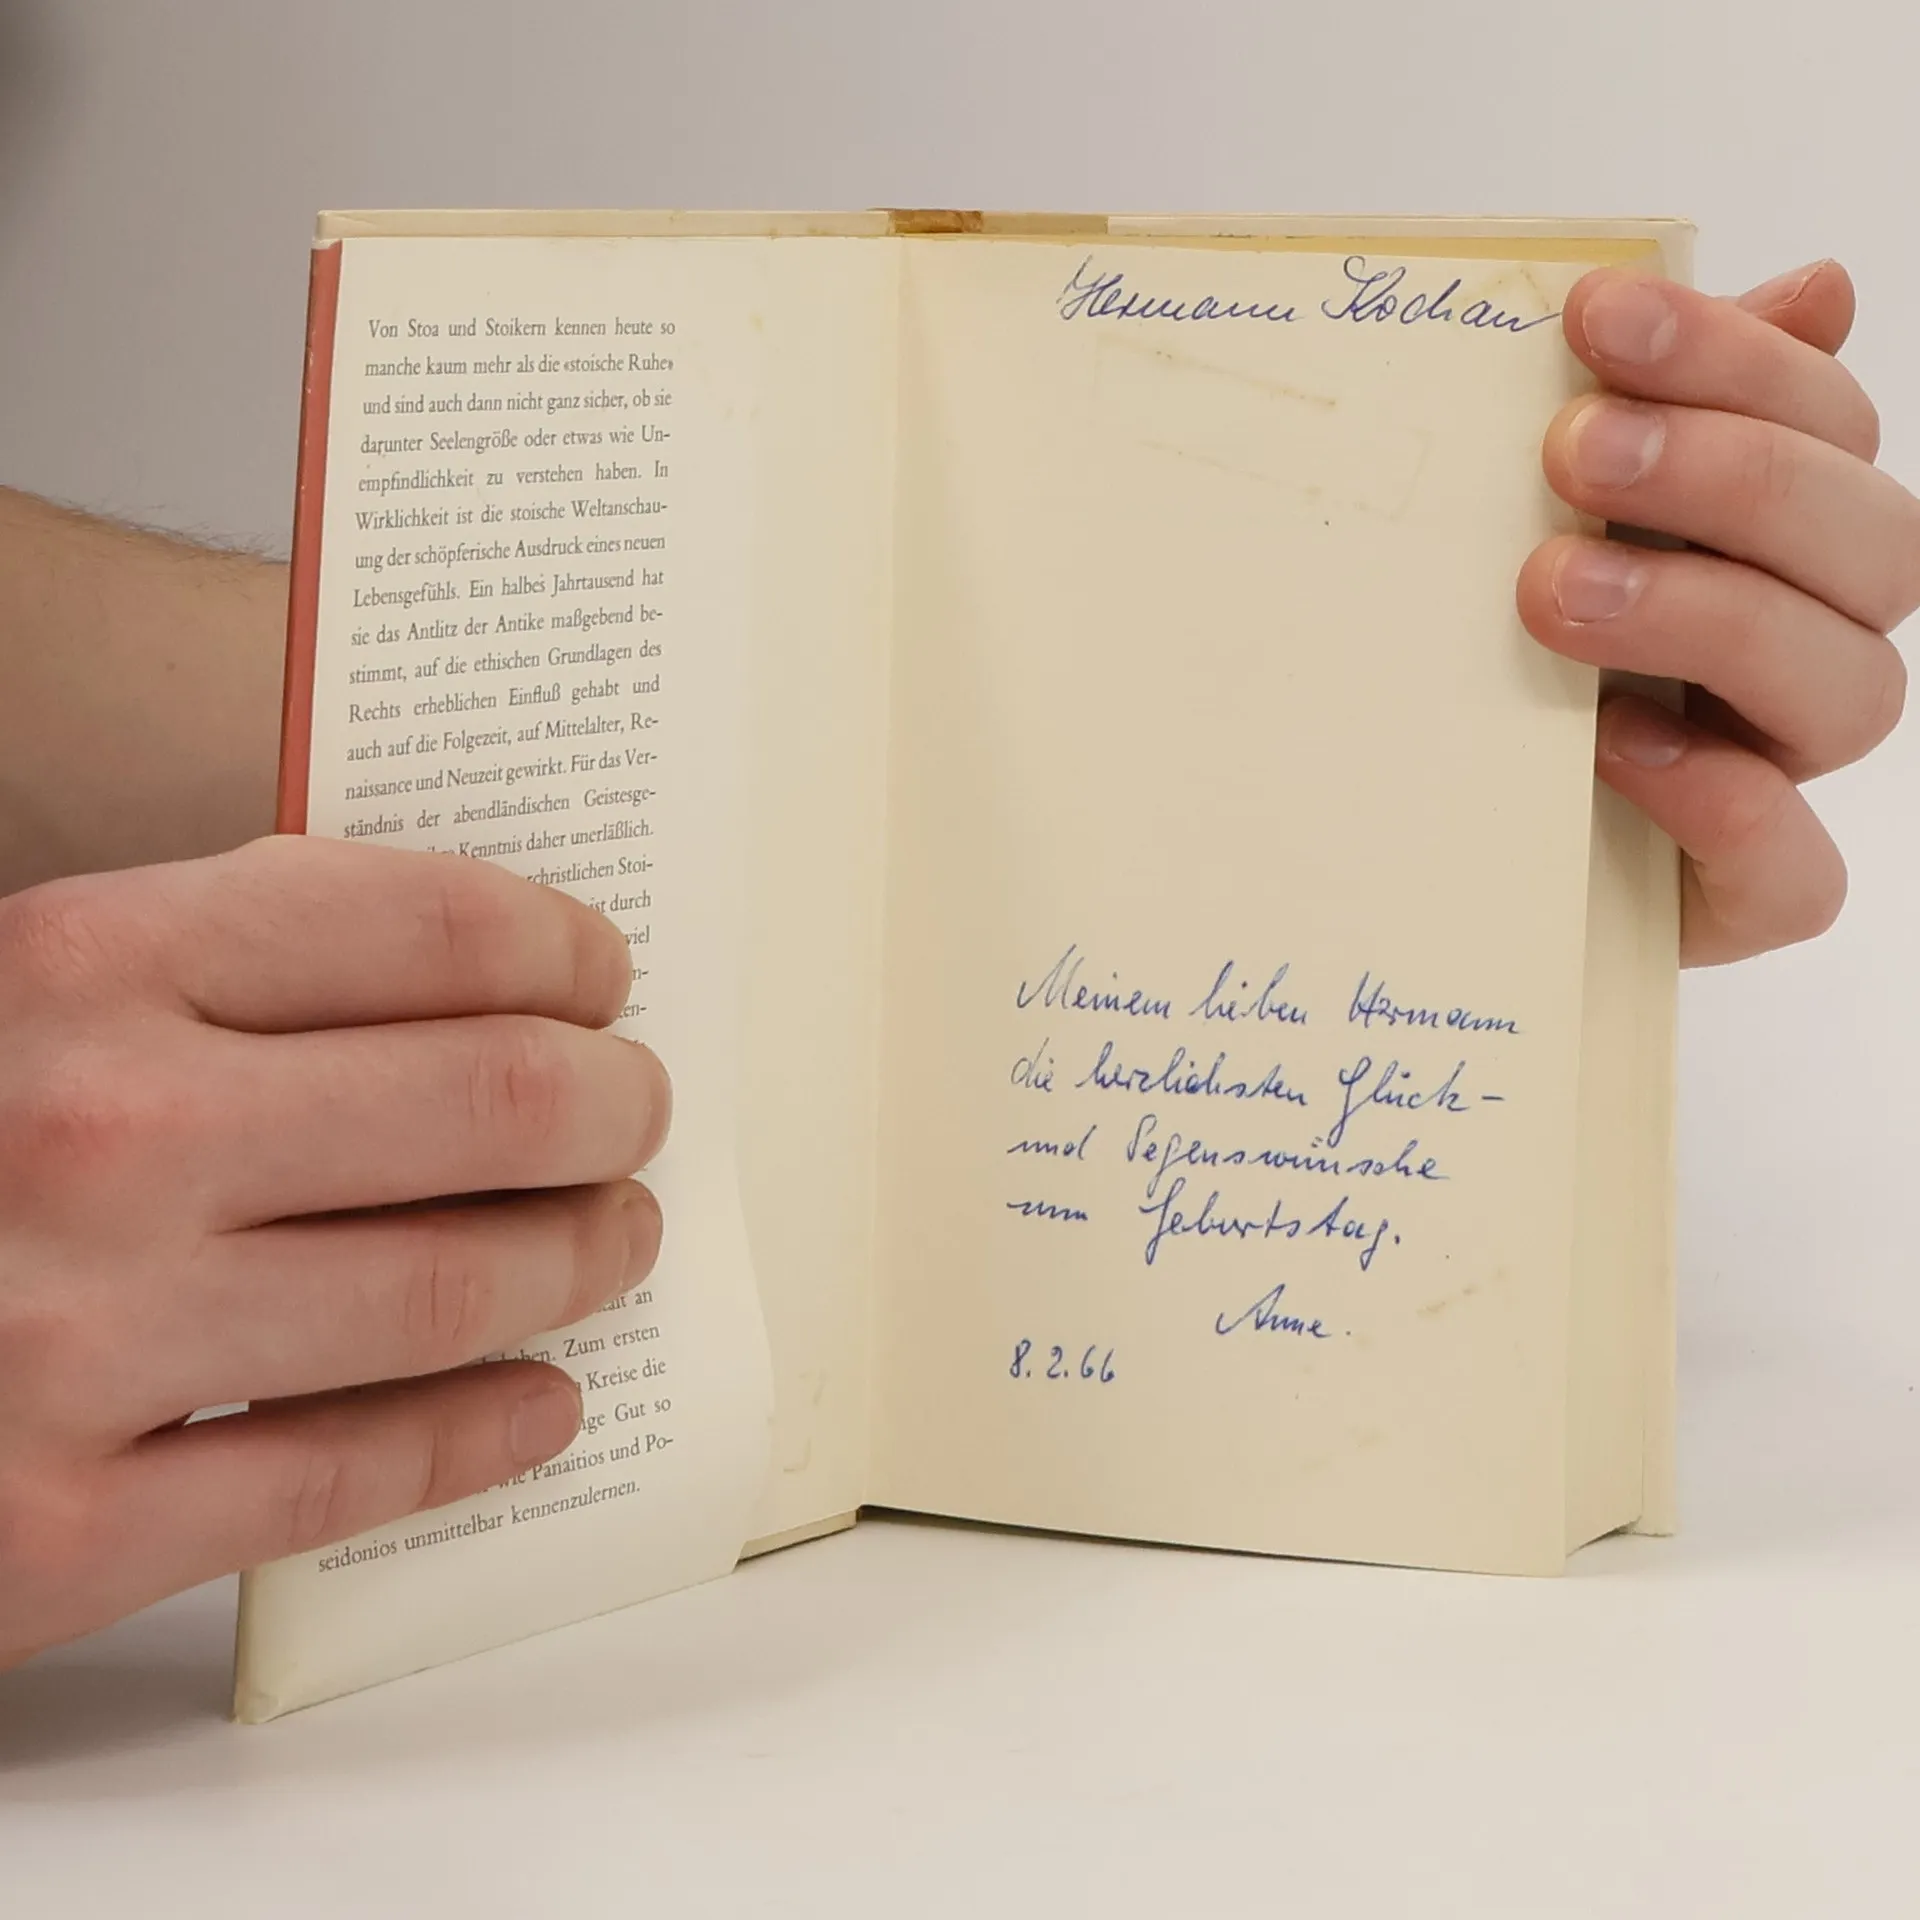 Von Stoa und Stoikern kennen heute so
manche kaum mehr als die «stoische Ruhe»
und sind auch dann nicht ganz sicher, ob sie
darunter Seelengröße oder etwas wie Un-
empfindlichkeit zu verstehen haben. In
Wirklichkeit ist die stoische Weltanschau-
ung der schöpferische Ausdruck eines neuen
Lebensgefühls. Ein halbes Jahrtausend hat
sie das Antlitz der Antike maßgebend be-
stimmt, auf die ethischen Grundlagen des
Rechts erheblichen Einfluß gehabt und
auch auf die Folgezeit, auf Mittelalter, Re-
naissance und Neuzeit gewirkt. Für das Ver-
ständnis der abendländischen Geistesge-
Kenntnis daher unerläßlich.
christlichen Stoi-
ist durch
viel
an
Zum ersten
Kreise die
Gut so
wie Panaitios und Po-
seidonios unmittelbar kennenzulernen.
Hermann Kochan
Meinem lieben Hermann
die herzlichsten Glück-
und Segenswünsche
zum Geburtstag.
Anne.
8.2.66